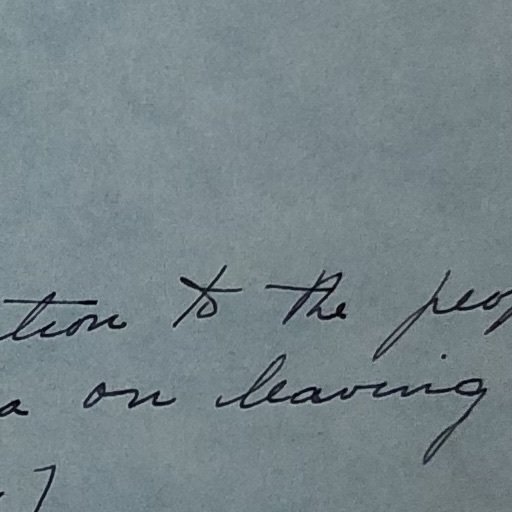 tion to the peop
a on leaving
]